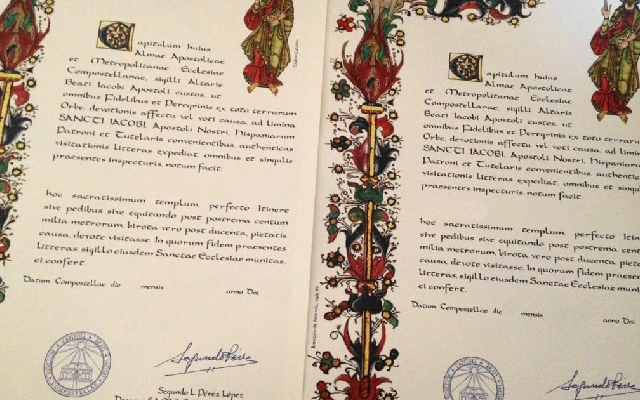 Capitulum huius
Almae Apostolicae
et Metropolitanae Ecclesiae
Compostellanae, sigilli Altaris
Beati Iacobi Apostoli custos, ut
omnibus Fidelibus et Peregrinis ex toto terrarum
Orbe, devotionis affectu vel voti causa, ad limina
SANCTI IACOBI, Apostoli Nostri, Hispaniarum
Patroni et Tutelaris convenientibus, authenticas
visitationis litteras expediat, omnibus et singulis
praesentes inspecturis, notum facit:
hoc sacratissimum templum, perfecto Itinere
sive pedibus sive equitando post postrema centum
milia metrorum, birota vero post ducenta, pietatis
causa, devote visitasse. In quorum fidem praesentes
litteras, sigillo eiusdem Sanctae Ecclesiae munitas,
ei confert.
Datum Compostellae die mensis anno Dni
Segundo L. Pérez López
Capitulum huius
Almae Apostolicae
et Metropolitanae Ecclesiae
Compostellanae, sigilli Altaris
Beati Iacobi Apostoli custos, ut
omnibus Fidelibus et Peregrinis ex toto terrar
Orbe, devotionis affectu vel voti causa, ad limin
SANCTI IACOBI, Apostoli Nostri, Hispaniar
Patroni et Tutelaris convenientibus, authentic
visitationis litteras expediat, omnibus et sin
praesentes inspecturis, notum facit:
hoc sacratissimum templum, perfecto Itin
sive pedibus sive equitando post postrema cent
milia metrorum, birota vero post ducenta, piet
causa, devote visitasse. In quorum fidem praesen
litteras, sigillo eiusdem Sanctae Ecclesiae muni
ei confert.
Datum Compostellae die mensis anno Dni